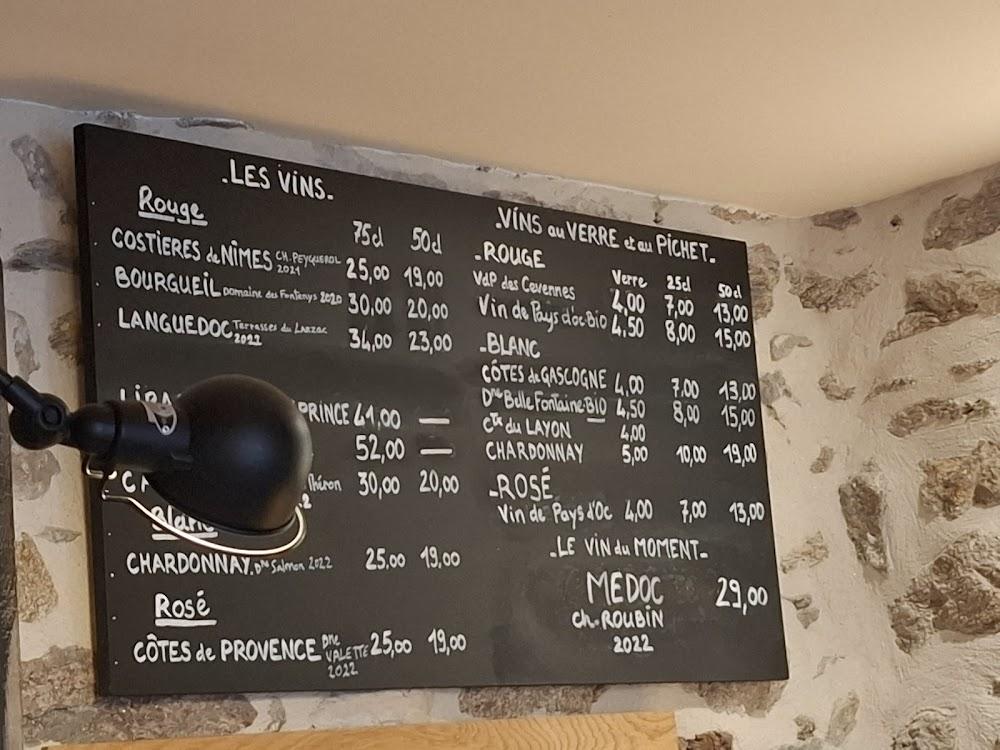 -LES VINS-
Rouge
75cl 50cl
COSTIERES de NÎMES CH. PEYQUEROL 2021 25,00 19,00
BOURGUEIL Domaine des Fontenys 2020 30,00 20,00
LANGUEDOC Terrasses du Larzac 2022 34,00 23,00
PRINCE 41,00 —
52,00 —
30,00 20,00
Blanc
CHARDONNAY. Dne Salmon 2022 25,00 19,00
Rosé
CÔTES de PROVENCE Dne VALETTE 2022 25,00 19,00
-VINS au VERRE et au PICHET-
-ROUGE
Verre 25cl 50cl
VdP des Cevennes 4,00 7,00 13,00
Vin de Pays d'oc-Bio 4,50 8,00 15,00
-BLANC
CÔTES de GASCOGNE 4,00 7,00 13,00
Dne Belle Fontaine-BIO 4,50 8,00 15,00
Ctx du LAYON 4,00
CHARDONNAY 5,00 10,00 19,00
-ROSÉ
Vin de Pays d'Oc 4,00 7,00 13,00
-LE VIN du MOMENT-
MEDOC 29,00
Ch. ROUBIN
2022